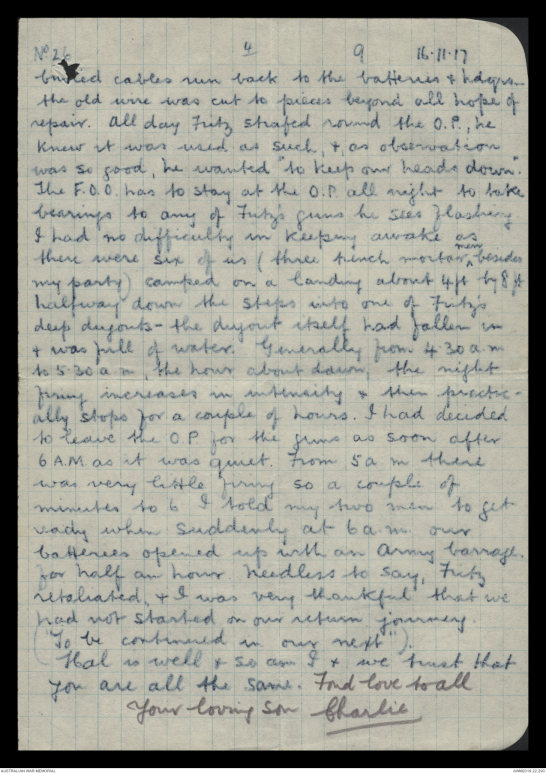 No 26 4 9 16.11.17
buried cables run back to the batteries & hdqrs -
the old wire was cut to pieces beyond all hope of
repair. All day Fritz strafed round the O.P., he
knew it was used as such, & as observation
was so good, he wanted "to keep our heads down".
The F.O.O. has to stay at the O.P. all night to take
bearings to any of Fritz's guns he sees flashing.
I had no difficulty in keeping awake as
there were six of us (three trench mortar men, besides
my party) camped on a landing about 4ft by 8 ft
halfway down the steps into one of Fritz's
deep dugouts - the dugout itself had fallen in
& was full of water. Generally from 4.30 a.m
to 5.30 a.m, the hour about dawn, the night
firing increases in intensity & then practic-
ally stops for a couple of hours. I had decided
to leave the O.P. for the guns as soon after
6 A.M. as it was quiet. From 5 a m there
was very little firing so a couple of
minutes to 6 I told my two men to get
ready when suddenly at 6 a.m. our
batteries opened up with an Army barrage.
for half an hour. Needless to say, Fritz
retaliated, & I was very thankful that we
had not started on our return journey.
("To be continued in our next").
Hal is well & so am I & we trust that
you are all the same. Fond love to all
Your loving son Charlie
AUSTRALIAN WAR MEMORIAL